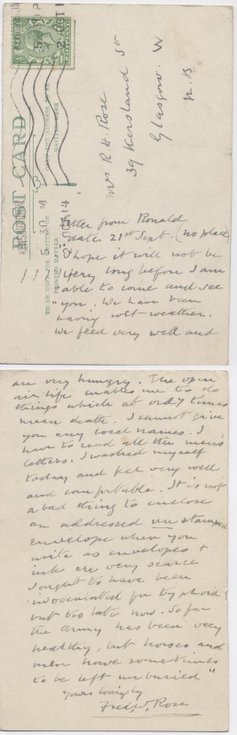 POST CARD
Mrs R H Rose
39 Kersland St
Glasgow. W
N.B
letter from Ronald
date 21st Sept. (no place)
I hope it will not be
very long before I am
able to come and see
you. We have been
having wet weather.
We feed very well and
are very hungry. The open
air life enables me to do
things which at ordy times
mean death. I cannot give
you any local names. I
have to read all the men's
letters. I washed myself
today and feel very well
and comfortable. It is not
a bad thing to enclose
an addressed unstamped
envelope when you
write as envelopes &
ink are very scarce
I ought to have been
innoculated for typhoid
but too late now. So far
the Army has been very
healthy, but horses and
men have sometimes
to be left unburied"
Yours lovingly
Fredk. J. Rose